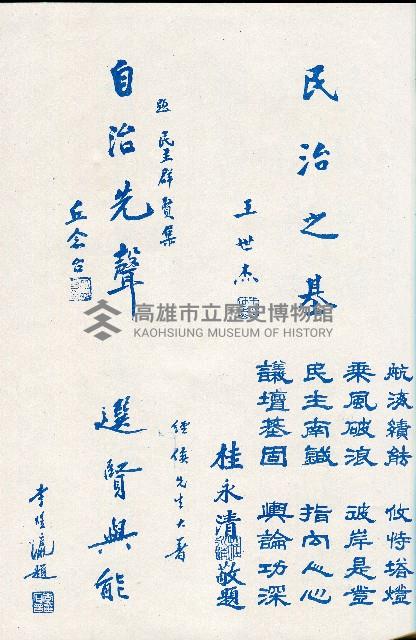 民治之基
王世杰
題民主群賢集
自治先聲
丘念台
航海績餘 攸恃塔燈
乘風破浪 彼岸是登
民生南鍼 指向人心
議壇基固 輿論功深
桂永清敬題
健僕先生大著
選賢與能
李啓瀛題
高雄市立歷史博物館
KAOHSIUNG MUSEUM OF HISTORY